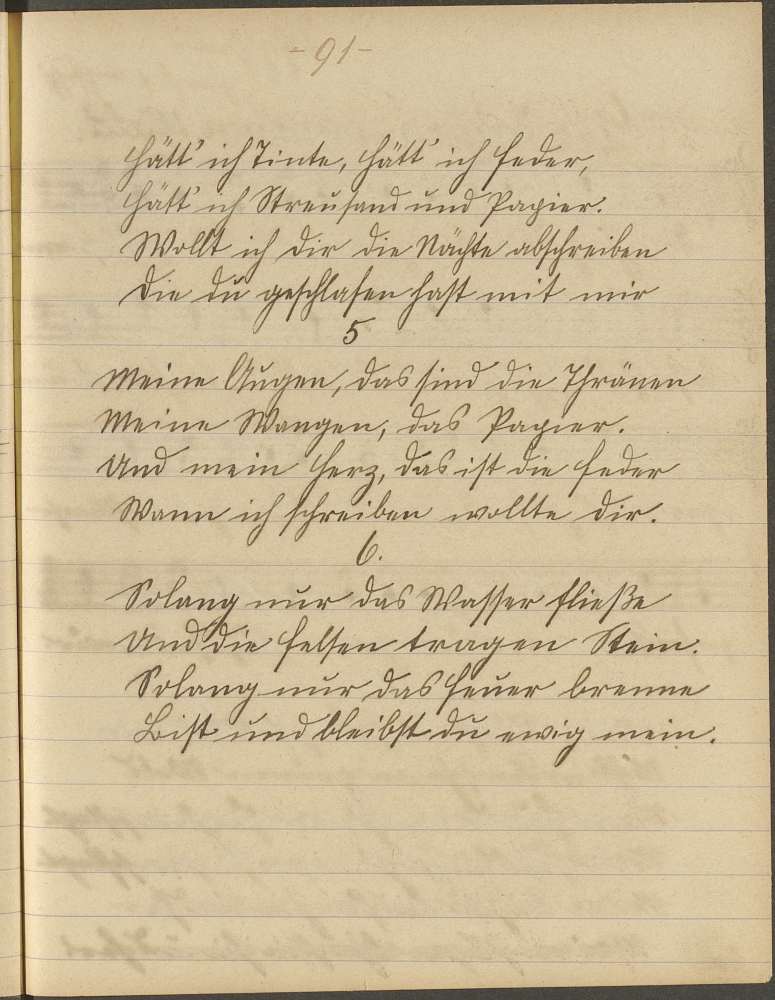 - 91 -
Hätt' ich Tinte, hätt' ich Feder,
Hätt' ich Streusand und Papier.
Wollt ich dir die Nächte abschreiben
Die du geschlafen hast mit mir
5
Meine Augen, das sind die Thränen
Meine Wangen, das Papier.
Und mein Herz, das ist die Feder
Wann ich schreiben wollte dir.
6.
Solang nur das Wasser fließe
Und die Felsen tragen Stein.
Solang nur das Feuer brenne
Bist und bleibst du ewig mein.